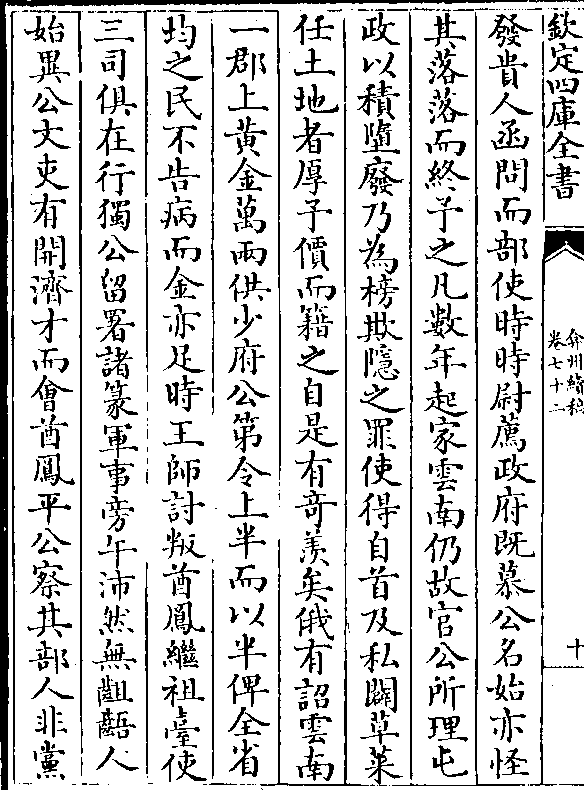 欽定四庫全書
弇州續稿
卷七十二
十
發貴人函問而部使時時尉薦政府既慕公名始亦怪
其落落而終予之凡數年起家雲南仍故官公所理屯
政以積墮廢乃為榜欺隱之罪使得自首及私闢草萊
任土地者厚予價而籍之自是有竒羡矣俄有詔雲南
一郡上黃金萬兩供少府公第令上半而以半俾全省
均之民不告病而金亦足時王師討叛酋鳳繼祖臺使
三司俱在行獨公留署諸篆軍事旁午沛然無齟齬人
始異公文吏有開濟才而會酋鳳平公察其部人非黨